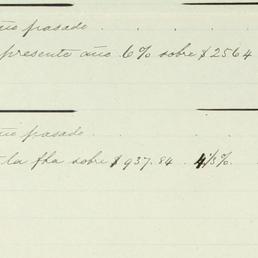 año pasado . . . .
presente año 6% sobre $2564
año pasado . . . .
la fha sobre $937.84 4⅓%.